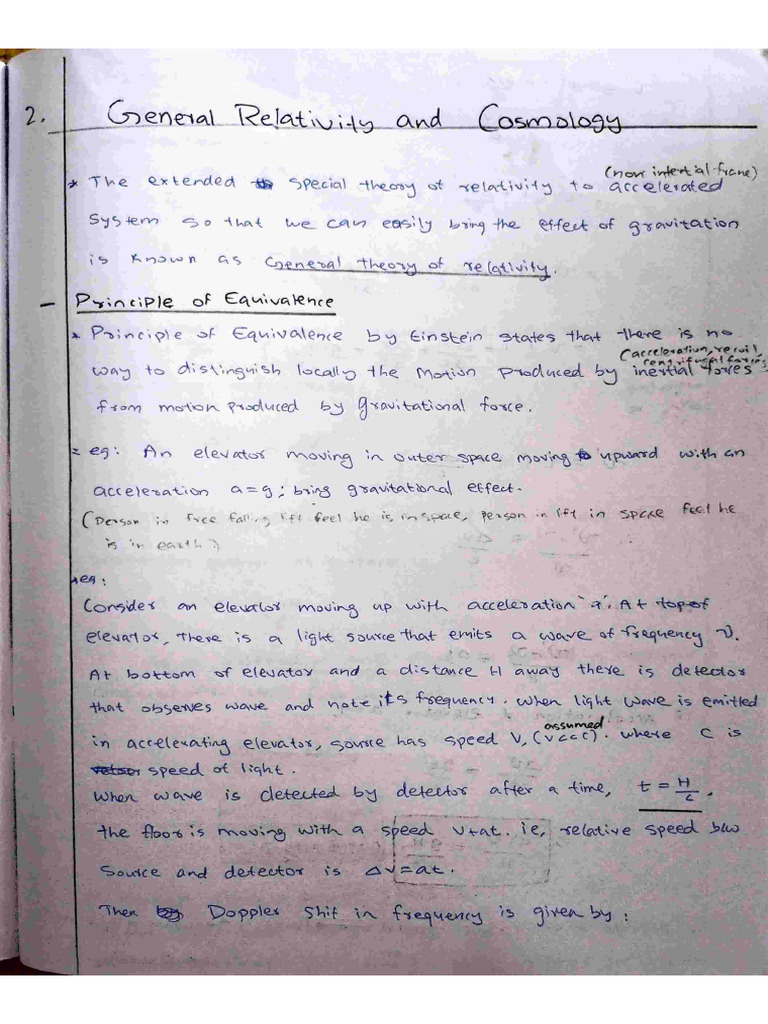 2. General Relativity and Cosmology
(non intertial frame)
* The extended special theory of relativity to accelerated
system so that we can easily bring the effect of gravitation
is known as General theory of relativity.
- Principle of Equivalence
* Principle of Equivalence by Einstein states that there is no
(acceleration, recoil,
centrifugal force)
way to distinguish locally the motion produced by inertial forces
from motion produced by gravitational force.
eg: An elevator moving in outer space moving upward with an
acceleration a=g; bring gravitational effect.
(person in free falling lift feel he is in space, person in lift in space feel he
is in earth)
* eg:
Consider an elevator moving up with acceleration 'a'. At top of
elevator, there is a light source that emits a wave of frequency ν.
At bottom of elevator and a distance H away there is detector
that observes wave and note its frequency. when light wave is emitted
assumed
in accelerating elevator, source has speed V, (V<<c). where C is
speed of light.
when wave is detected by detector after a time, t = H/c,
the floor is moving with a speed v+at. ie, relative speed b/w
source and detector is Δv=at.
Then Doppler Shif in frequency is given by: